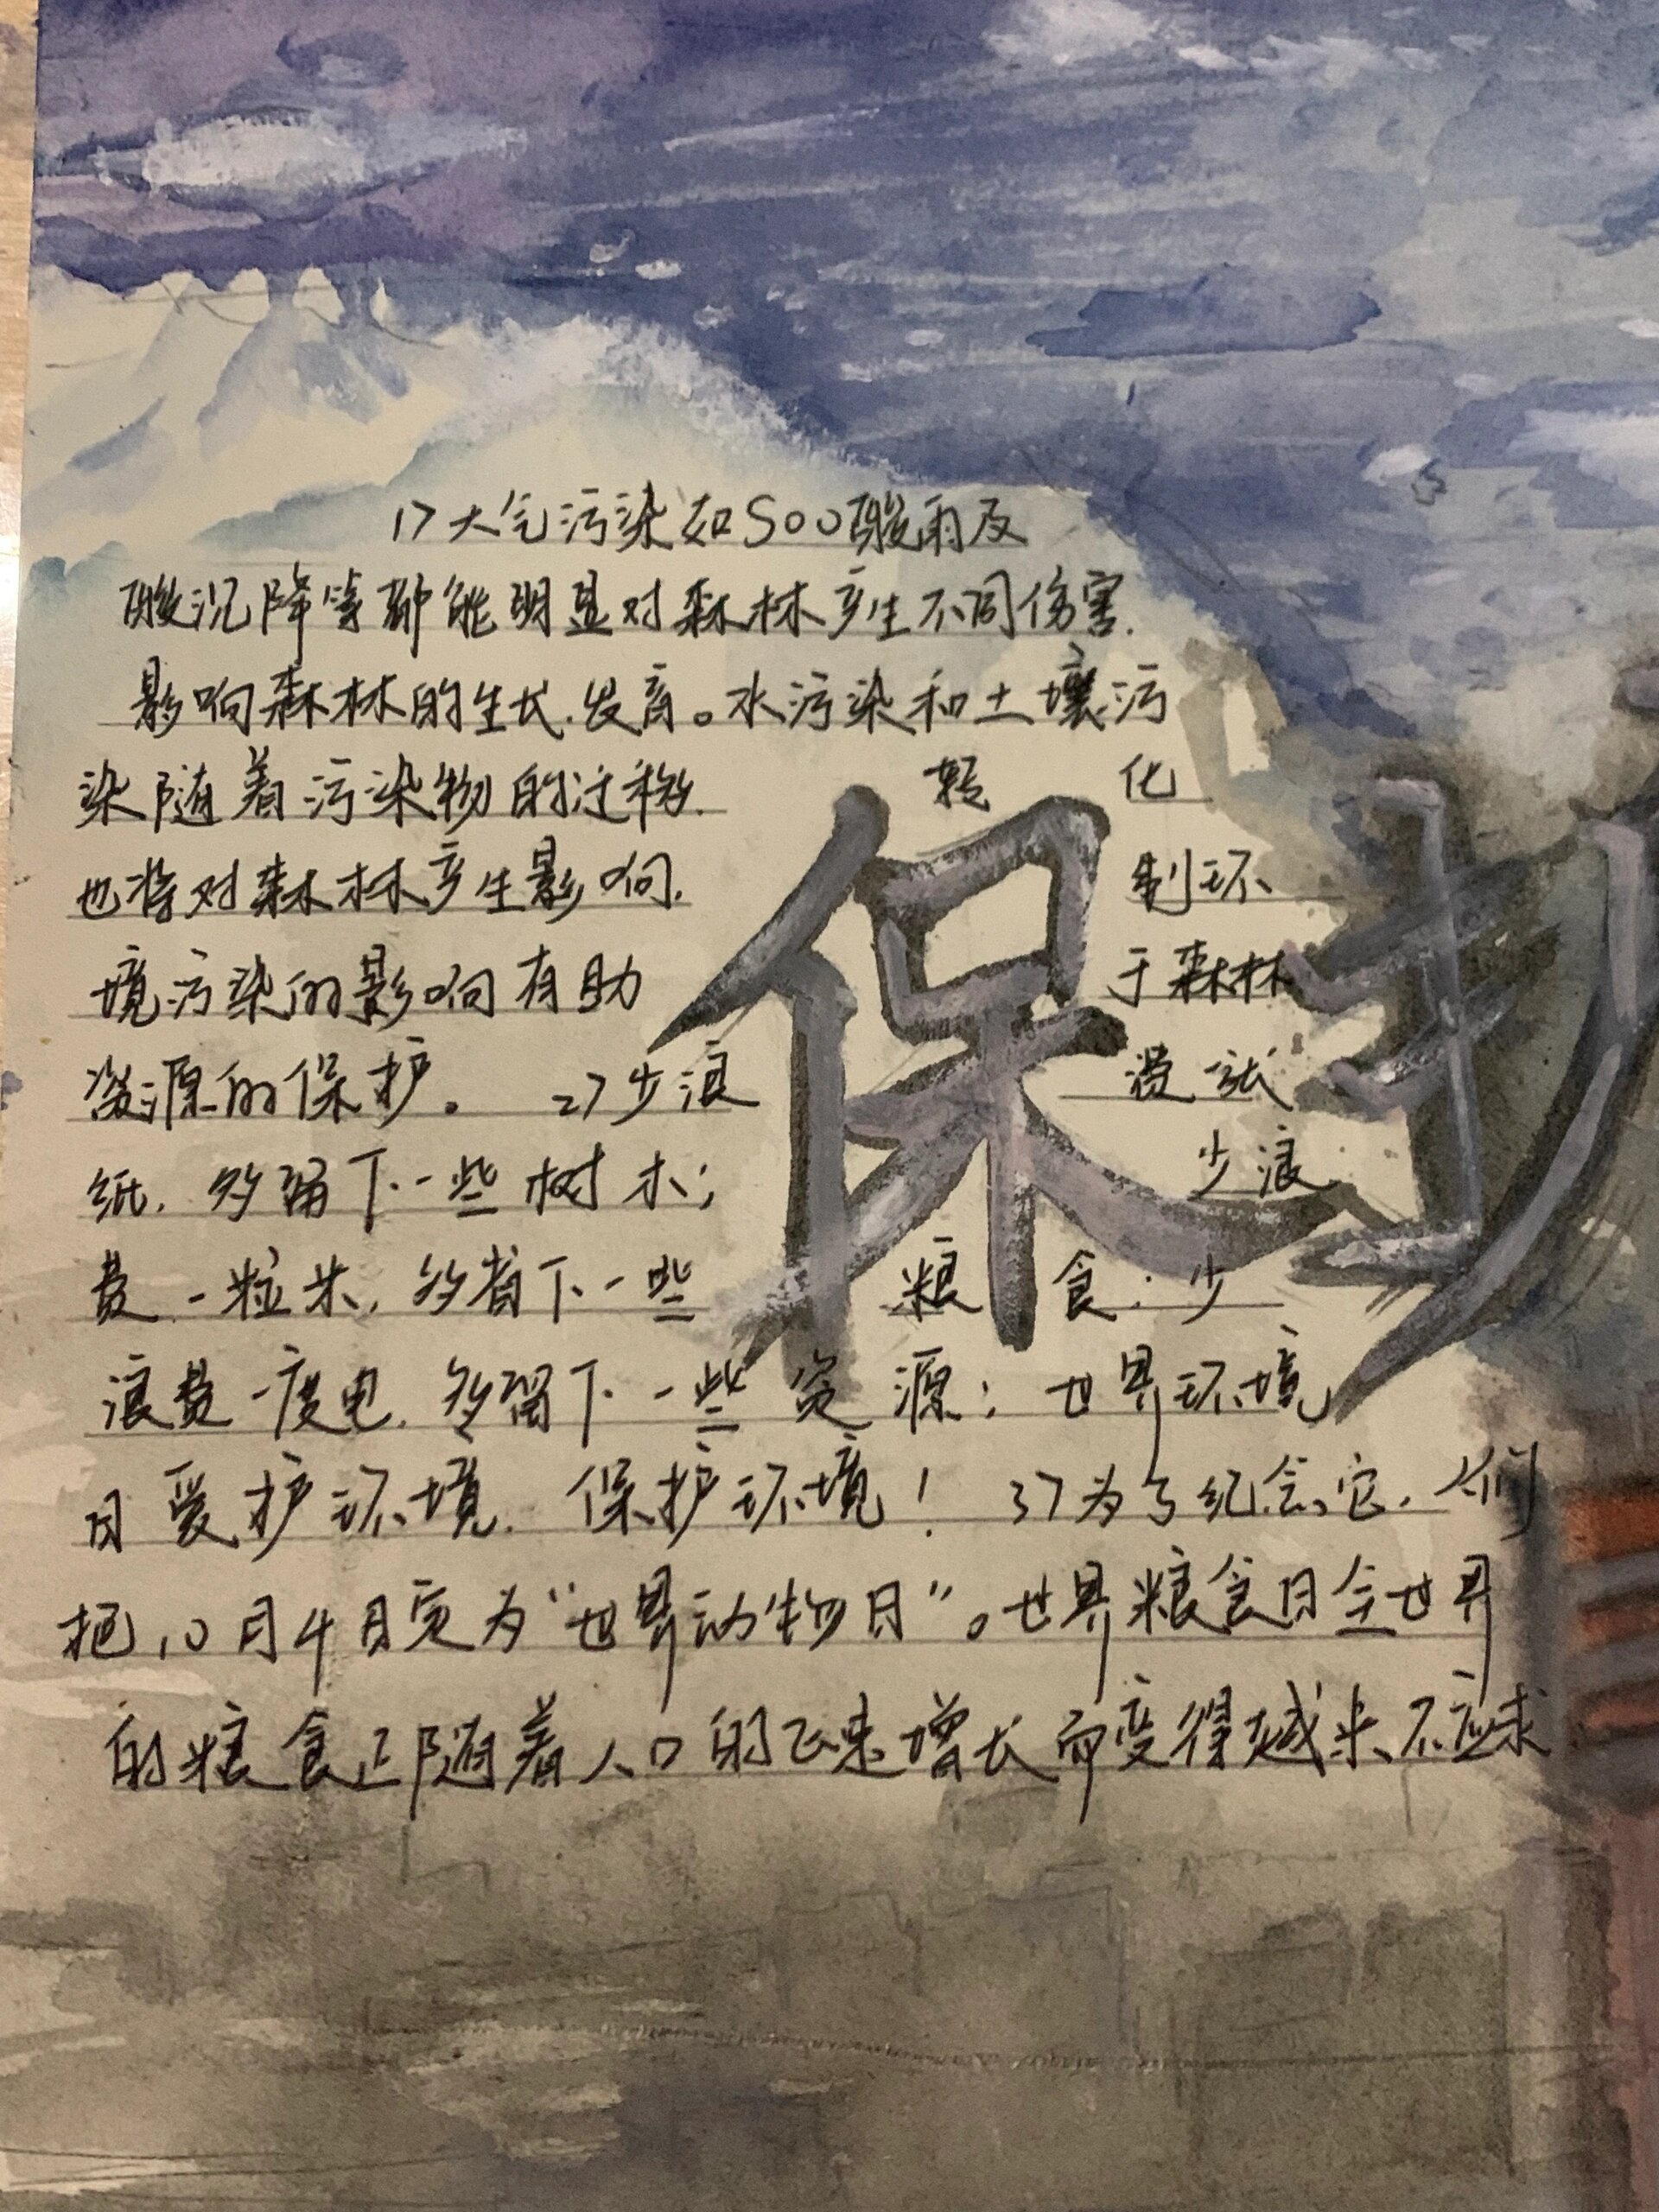 1>大气污染如SOO酸雨及
酸沉降等都能明显对森林产生不同伤害.
影响森林的生长.发育。水污染和土壤污
染随着污染物的迁移. 转 化
也将对森林产生影响. 制环
境污染的影响有助 于森林
资源的保护。 2>少浪 费一张
纸.多留下一些树木; 少浪
费一粒米,多省下一些 粮 食;少
浪费一度电.多留下一些资 源;世界环境
日爱护环境.保护环境! 3>为了纪念它.人们
把10月4日定为“世界动物日”。世界粮食日全世界
的粮食正随着人口的飞速增长而变得越来不应求
保护